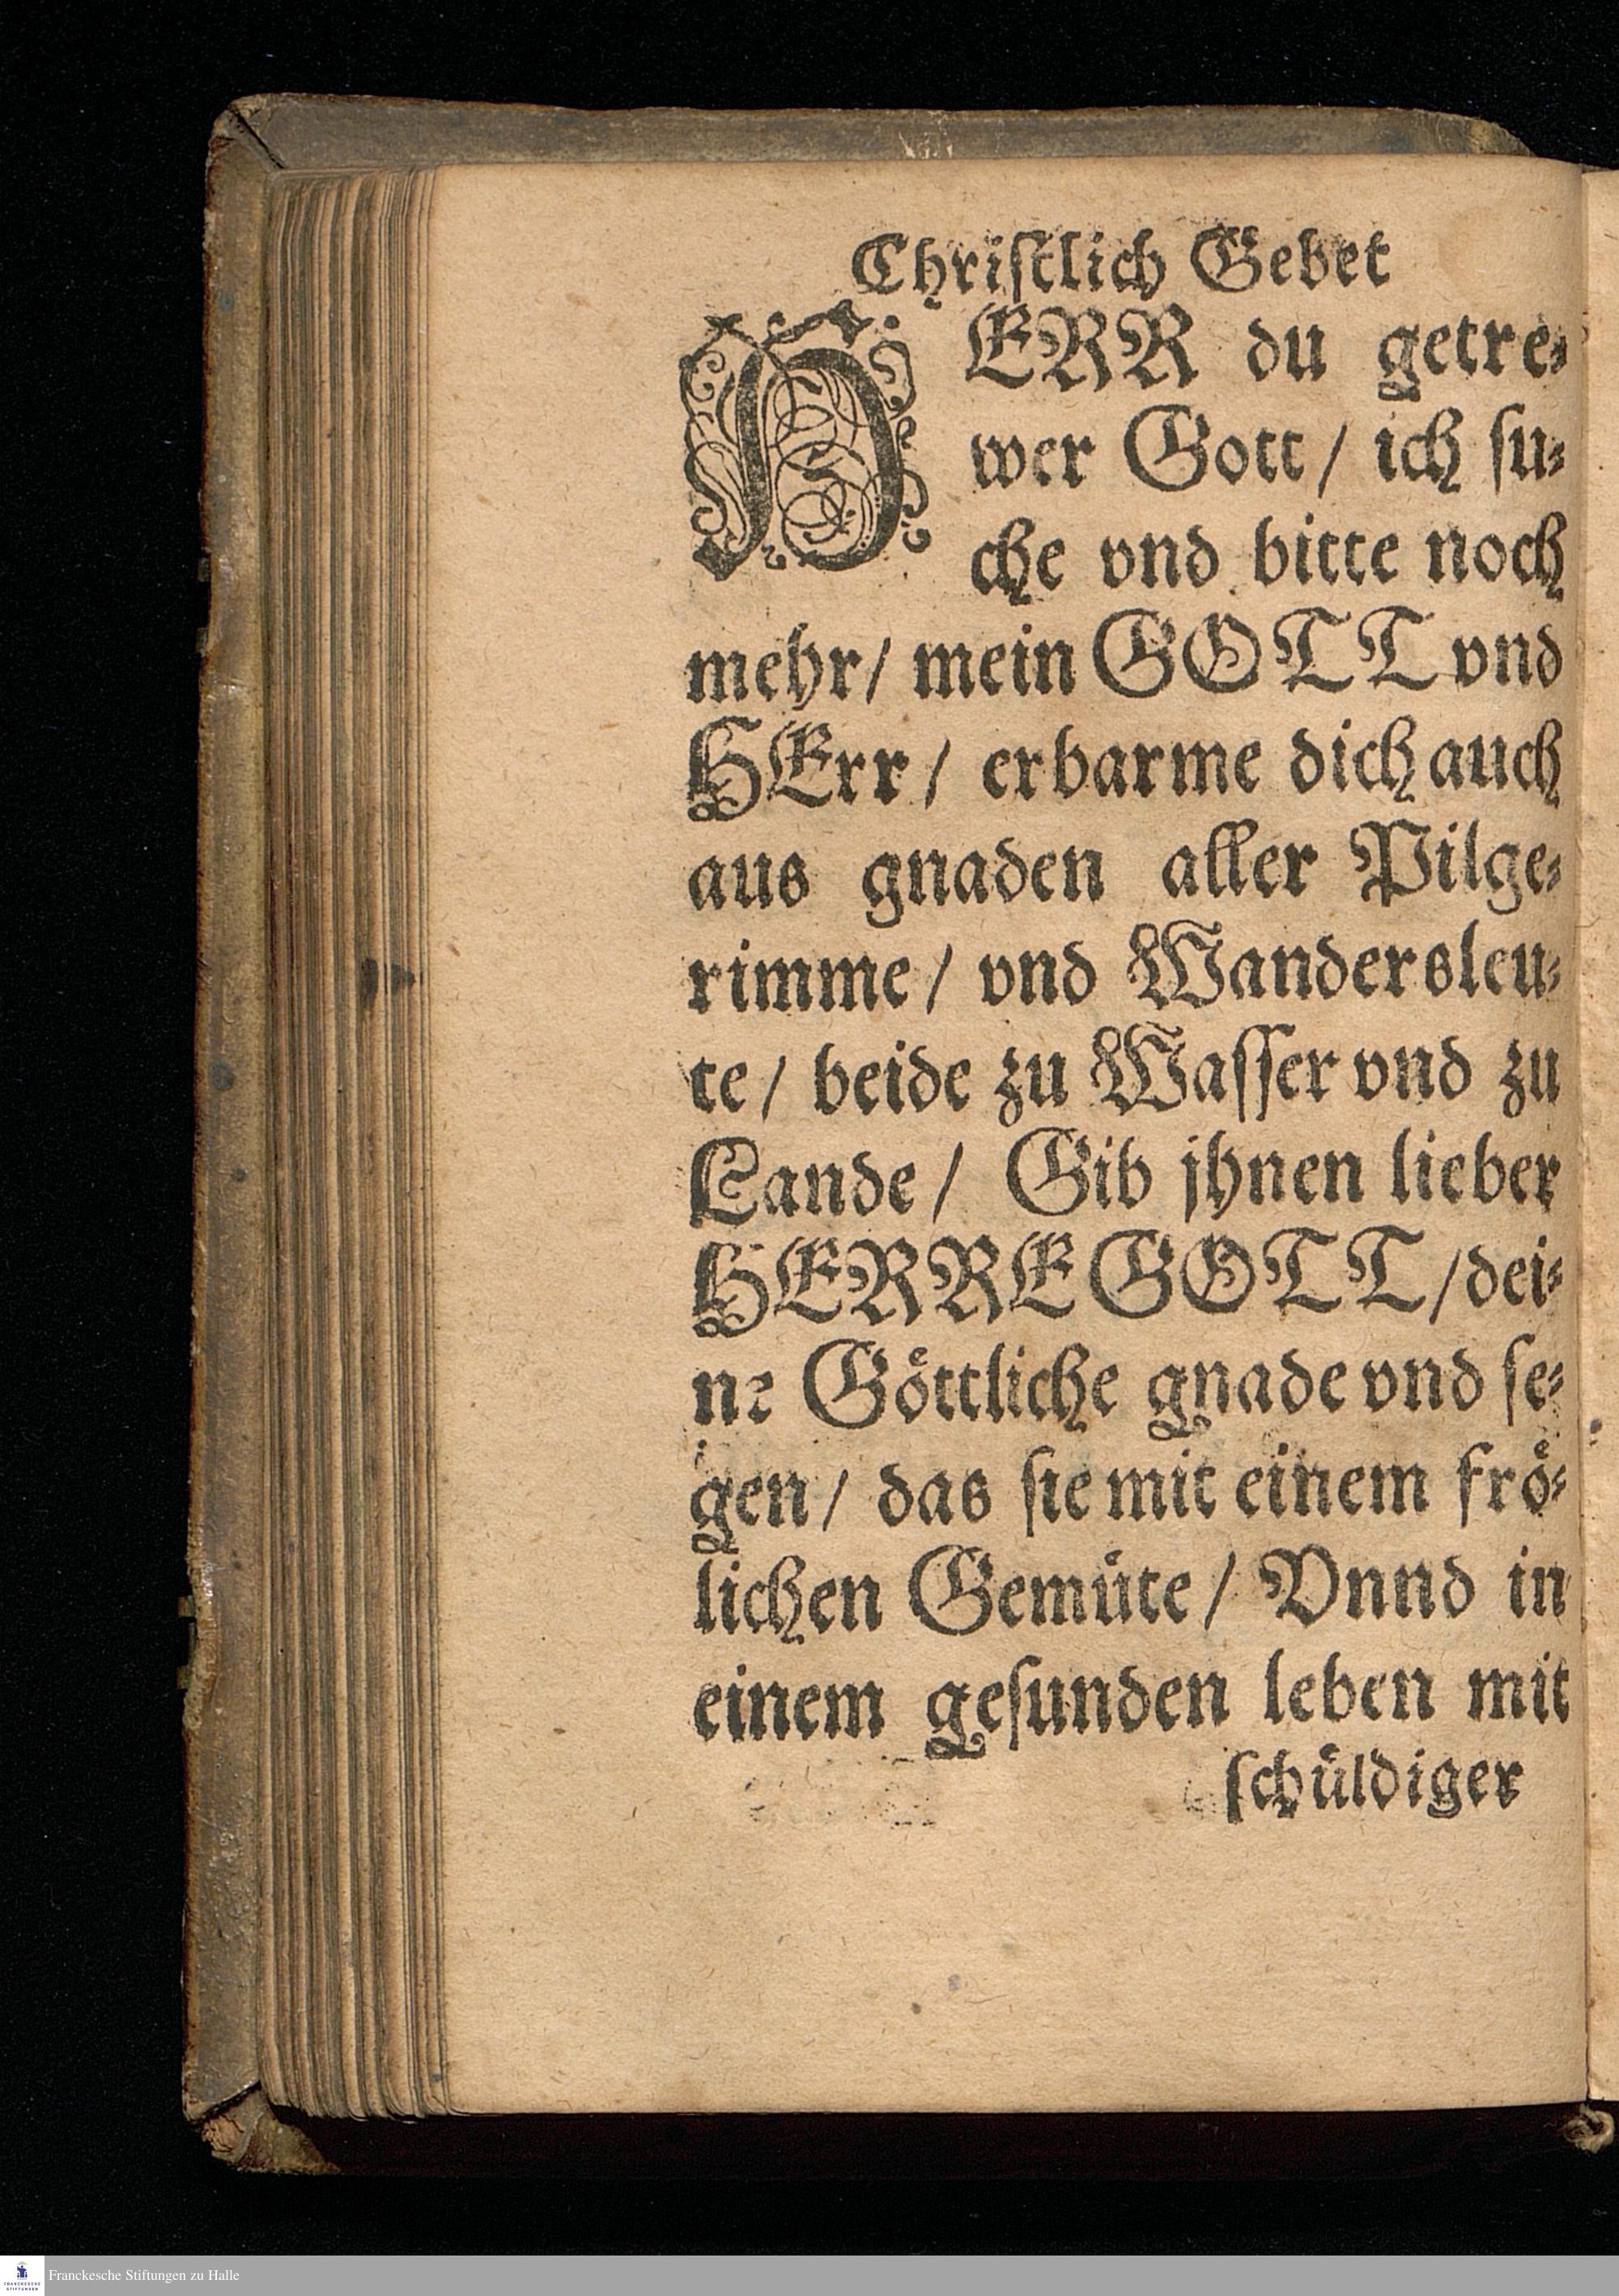 Christlich Gebet
HERR du getre⸗
wer Gott / ich su⸗
che vnd bitte noch
mehr / mein GOTT vnd
HErr / erbarme dich auch
aus gnaden aller Pilge⸗
rimme / vnd Wandersleu⸗
te / beide zu Wasser vnd zu
Lande / Gib jhnen lieber
HERRE GOTT / dei⸗
ne Göttliche gnade vnd se⸗
gen / das sie mit einem frö⸗
lichen Gemüte / Vnnd in
einem gesunden leben mit
schüldiger
FRANCKESCHE STIFTUNGEN
Franckesche Stiftungen zu Halle